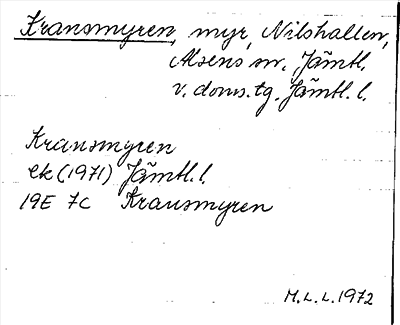 Kransmyren, myr, Nilshallen,
Alsens sn, Jämtl.
v. doms. tg. Jämtl. l.
Kransmyren
ek (1971) Jämtl. l.
19E 7C Kransmyren
M.L.L. 1972